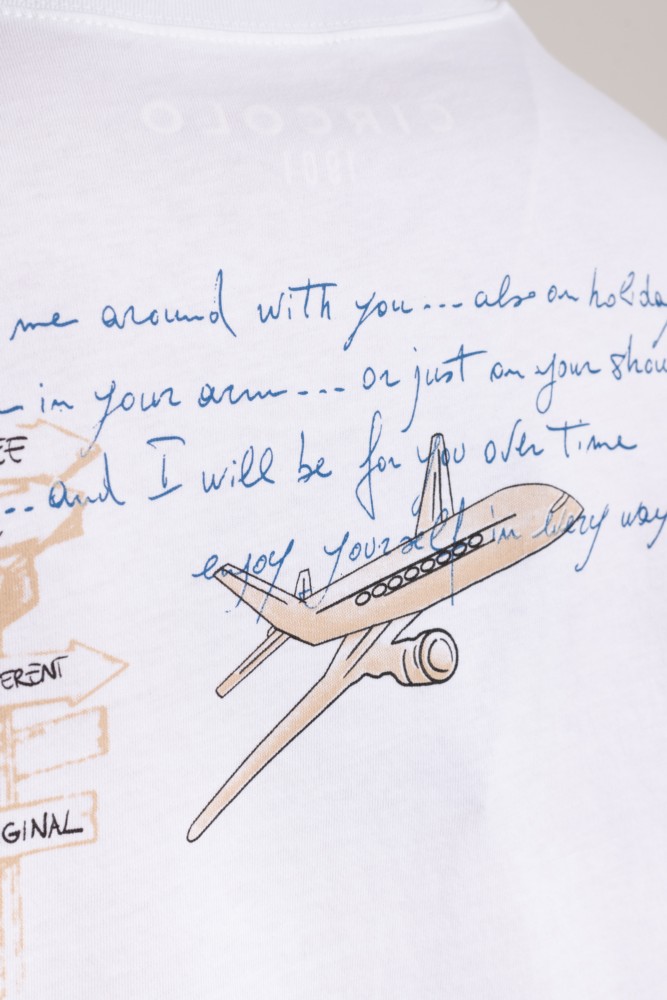 CIRCOLO
1901
me around with you... also on holiday
in your arm... or just on your shou
...and I will be for you over time
enjoy yourself in every way
EE
ERENT
GINAL